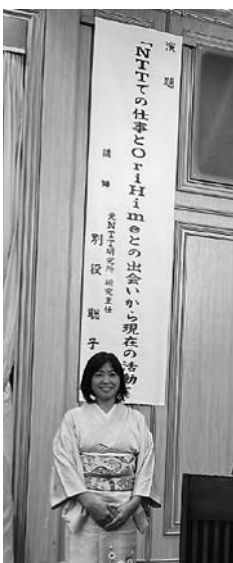 演題
「NTTでの仕事とOriHimeとの出会いから現在の活動
講師
元NTT研究所 研究主任
別役聡子